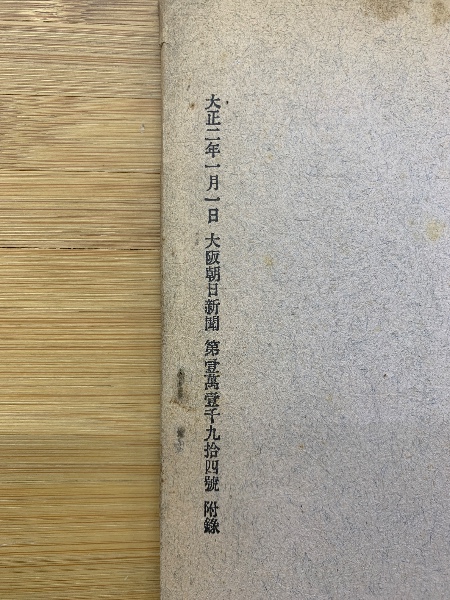 大正二年一月一日 大阪朝日新聞 第壹萬壹千九拾四號 附錄